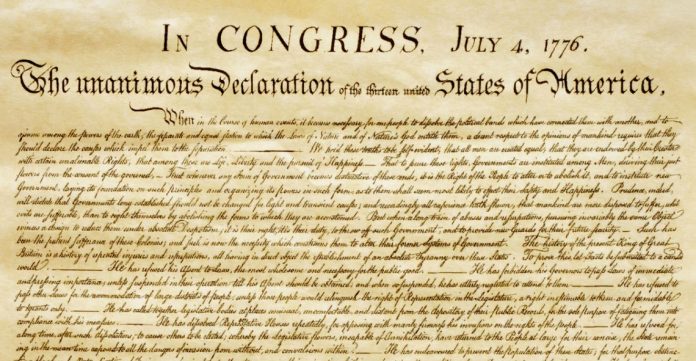 IN CONGRESS, JULY 4, 1776.
The unanimous Declaration of the thirteen united States of America,
When in the Course of human events, it becomes necessary for one people to dissolve the political bands which have connected them with another, and to
assume among the powers of the earth, the separate and equal station to which the Laws of Nature and of Nature's God entitle them, a decent respect to the opinions of mankind requires that they
should declare the causes which impel them to the separation. — We hold these truths to be self-evident, that all men are created equal, that they are endowed by their Creator
with certain unalienable Rights, that among these are Life, Liberty and the pursuit of Happiness. — That to secure these rights, Governments are instituted among Men, deriving their just
powers from the consent of the governed, — That whenever any Form of Government becomes destructive of these ends, it is the Right of the People to alter or to abolish it, and to institute new
Government, laying its foundation on such principles and organizing its powers in such form, as to them shall seem most likely to effect their Safety and Happiness. Prudence, indeed,
will dictate that Governments long established should not be changed for light and transient causes; and accordingly all experience hath shewn, that mankind are more disposed to suffer, while
evils are sufferable, than to right themselves by abolishing the forms to which they are accustomed. But when a long train of abuses and usurpations, pursuing invariably the same Object
evinces a design to reduce them under absolute Despotism, it is their right, it is their duty, to throw off such Government, and to provide new Guards for their future security. — Such has
been the patient sufferance of these Colonies; and such is now the necessity which constrains them to alter their former Systems of Government. The history of the present King of Great
Britain is a history of repeated injuries and usurpations, all having in direct object the establishment of an absolute Tyranny over these States. To prove this, let Facts be submitted to a candid
world. — He has refused his Assent to Laws, the most wholesome and necessary for the public good. — He has forbidden his Governors to pass Laws of immediate
and pressing importance, unless suspended in their operation till his Assent should be obtained; and when so suspended, he has utterly neglected to attend to them. — He has refused to
pass other Laws for the accommodation of large districts of people, unless those people would relinquish the right of Representation in the Legislature, a right inestimable to them and formidable
to tyrants only. — He has called together legislative bodies at places unusual, uncomfortable, and distant from the depository of their Public Records, for the sole purpose of fatiguing them into
compliance with his measures. — He has dissolved Representative Houses repeatedly, for opposing with manly firmness his invasions on the rights of the people. — He has refused for a
long time, after such dissolutions, to cause others to be elected; whereby the Legislative powers, incapable of Annihilation, have returned to the People at large for their exercise; the State remain=
ing in the mean time exposed to all the dangers of invasion from without, and convulsions within. — He has endeavoured to prevent the population of these States; for that purpose